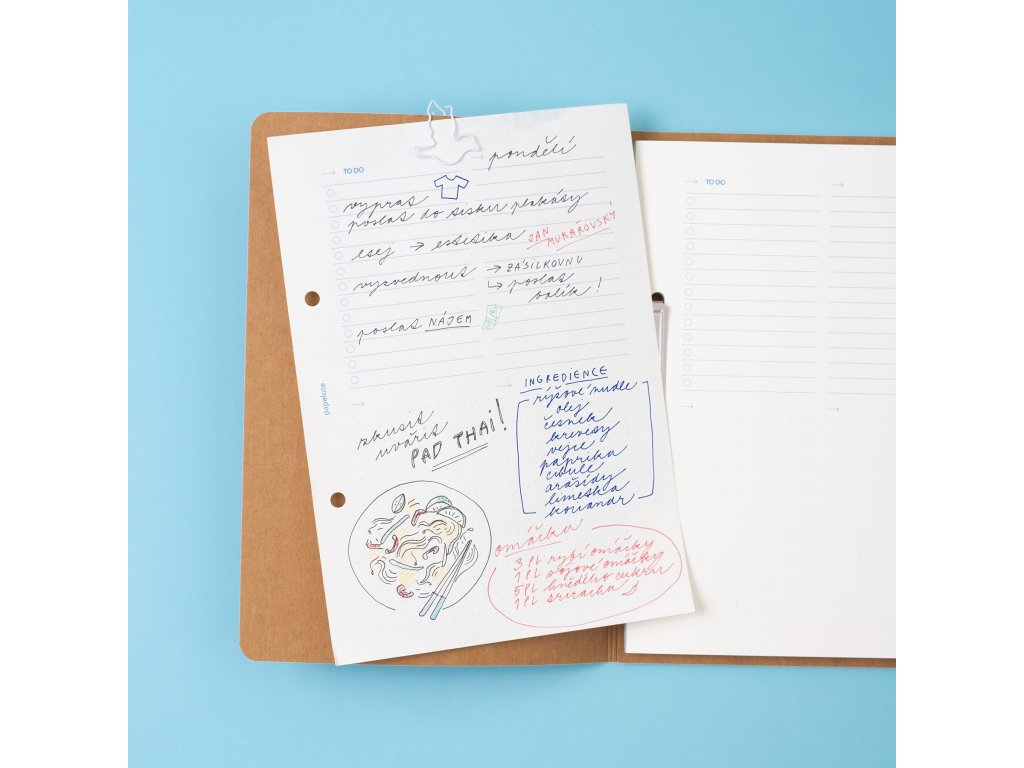 pondělí
→ TO DO
vyprat
poslat do tisku plakáty
esej → estetika JAN
MUKAŘOVSKÝ
vyzvednout → ZÁSILKOVNU
↳ poslat
balík!
poslat NÁJEM
papelote
zkusit
uvařit
PAD THAI!
INGREDIENCE
rýžové nudle
olej
česnek
krevety
vejce
paprika
cibule
arašídy
limetka
koriandr
omáčka
3 PL rybí omáčky
1 PL sójové omáčky
5 PL hnědého cukru
1 PL sriracha
→ TO DO